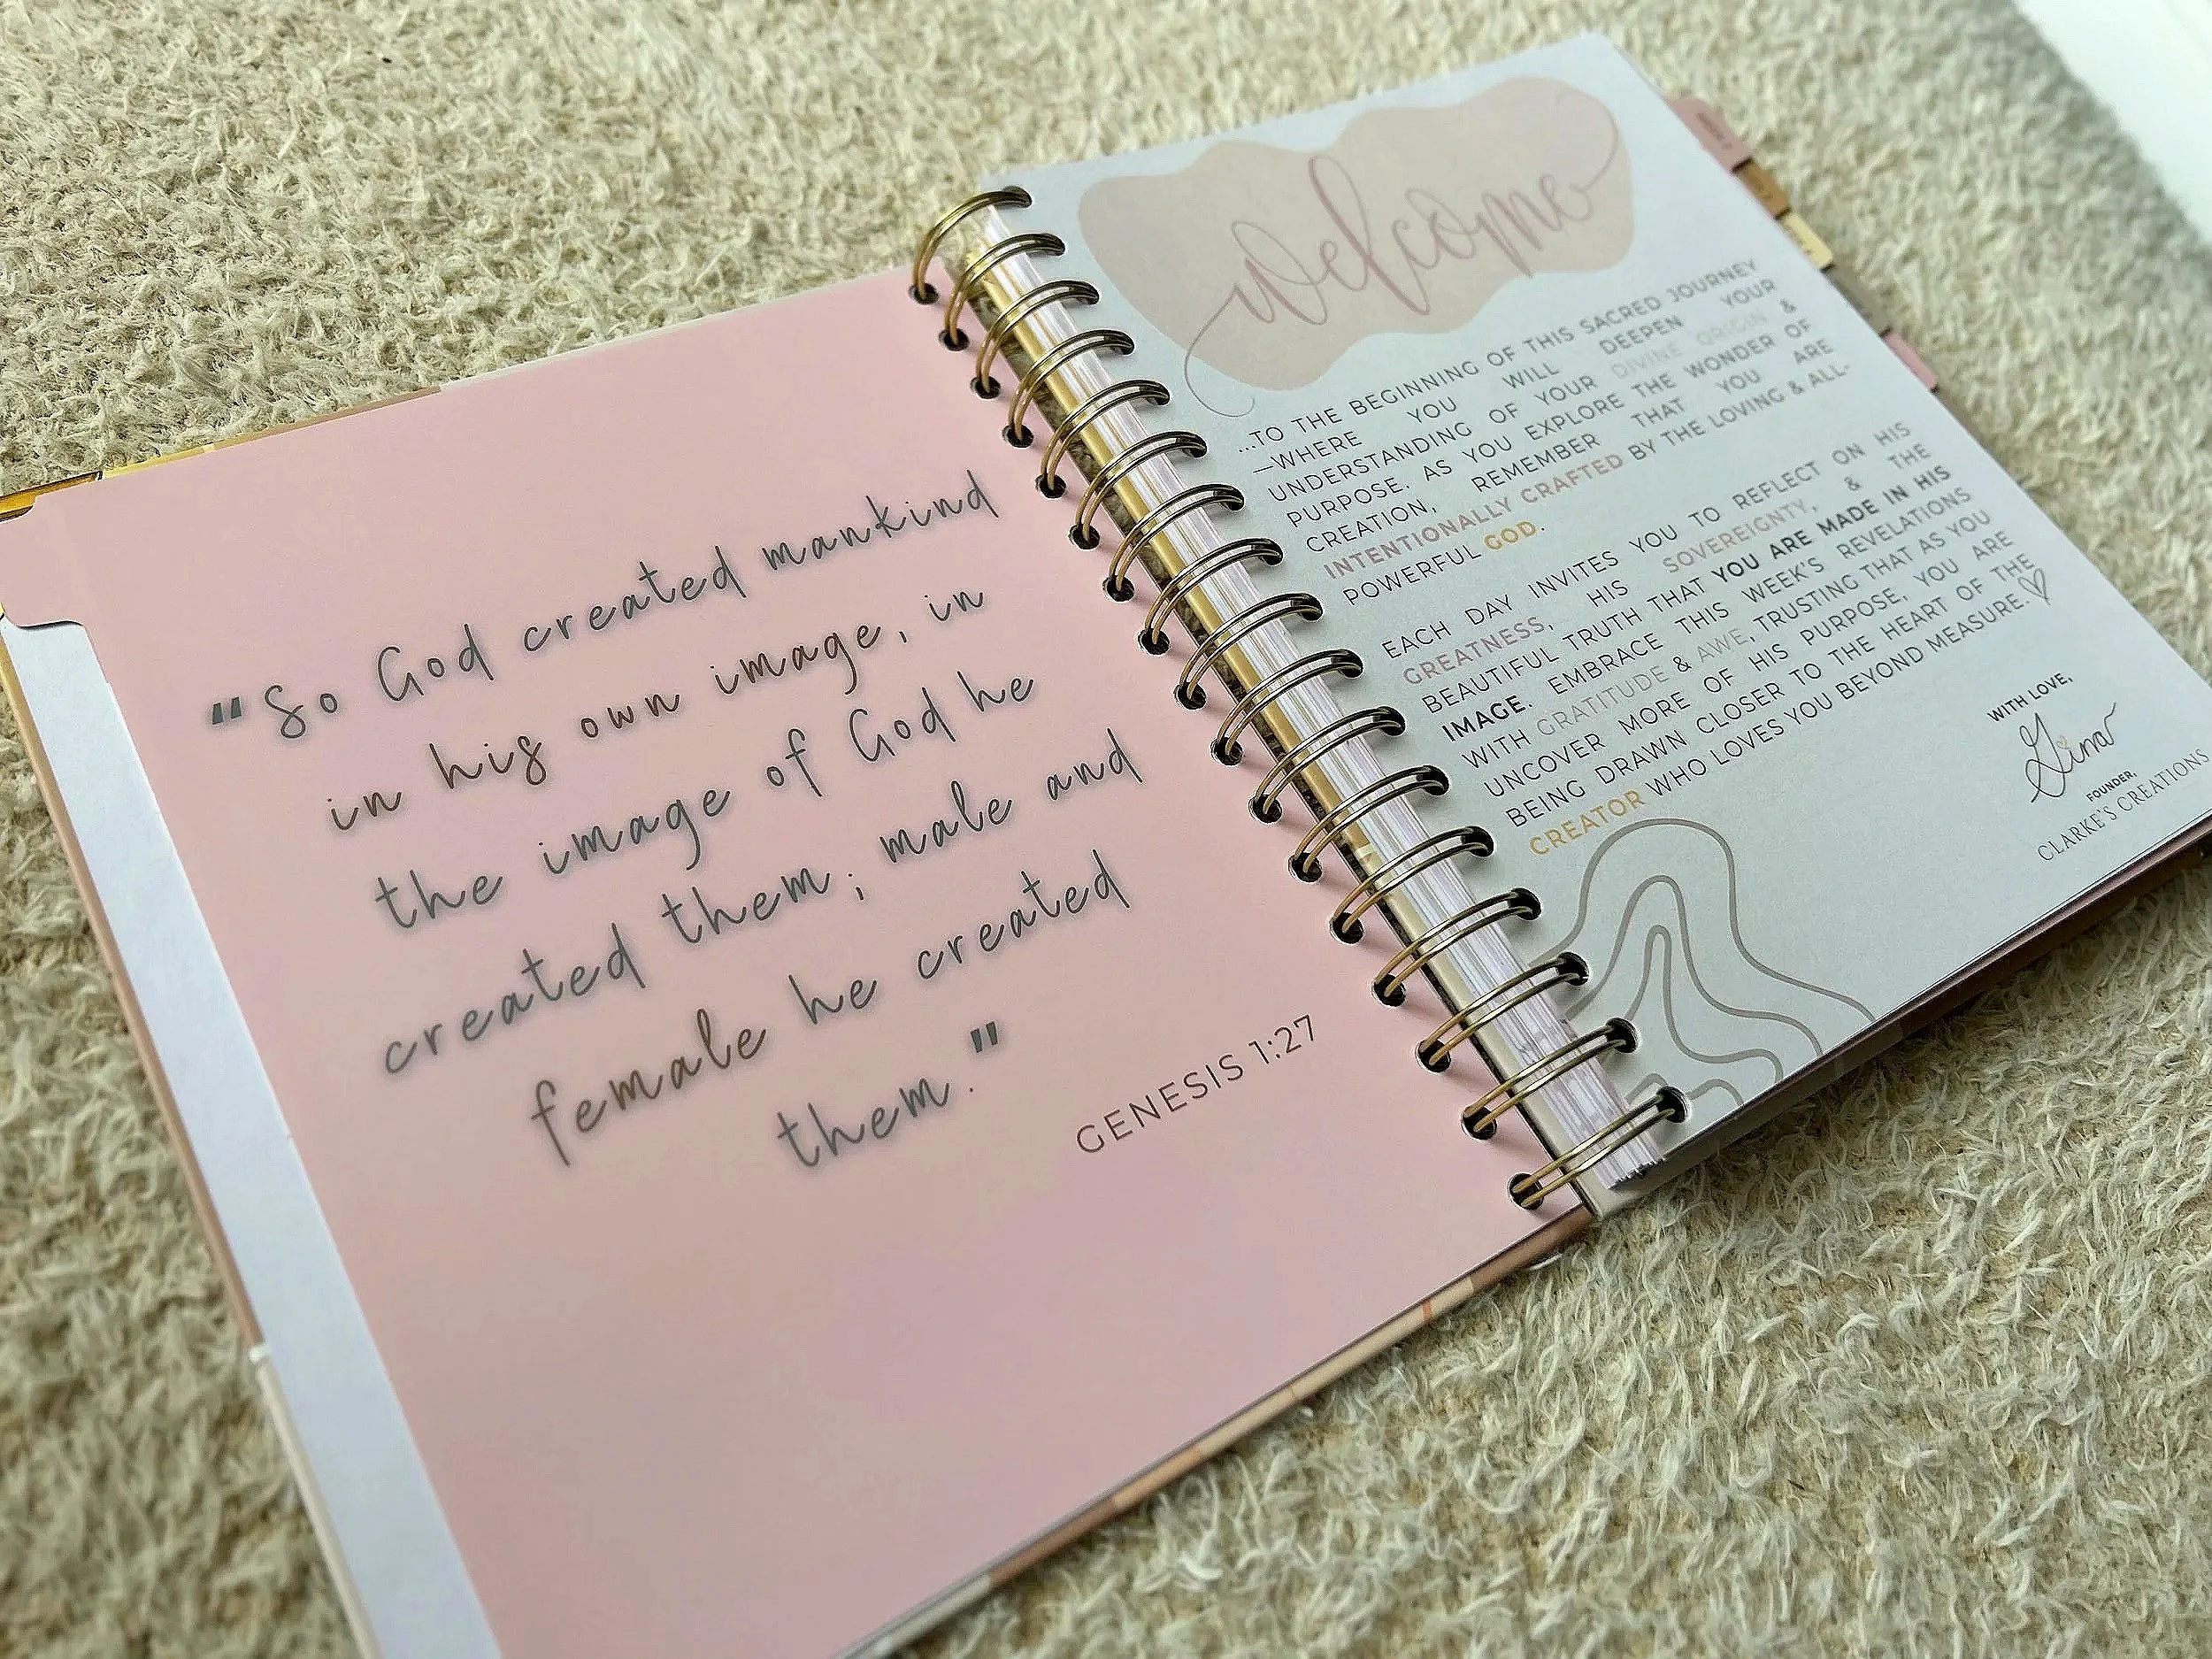 “So God created mankind
in his own image, in
the image of God he
created them; male and
female he created
them."
GENESIS 1:27
welcome
...TO THE BEGINNING OF THIS SACRED JOURNEY
—WHERE YOU WILL DEEPEN YOUR
UNDERSTANDING OF YOUR DIVINE ORIGIN &
PURPOSE. AS YOU EXPLORE THE WONDER OF
CREATION, REMEMBER THAT YOU ARE
INTENTIONALLY CRAFTED BY THE LOVING & ALL-
POWERFUL GOD.
EACH DAY INVITES YOU TO REFLECT ON HIS
GREATNESS, HIS SOVEREIGNTY, & THE
BEAUTIFUL TRUTH THAT YOU ARE MADE IN HIS
IMAGE. EMBRACE THIS WEEK'S REVELATIONS
WITH GRATITUDE & AWE, TRUSTING THAT AS YOU
UNCOVER MORE OF HIS PURPOSE, YOU ARE
BEING DRAWN CLOSER TO THE HEART OF THE
CREATOR WHO LOVES YOU BEYOND MEASURE.♡
WITH LOVE,
Gina
FOUNDER,
CLARKE'S CREATIONS